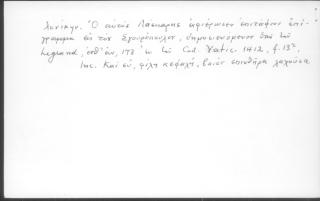 λονίκην. Ὁ αὐτὸς Λάσκαρης ἀφιέρωσεν ἐπιτάφιον ἐπί-
γραμμα εἰς τον Σγουρόπουλον, δημοσιευόμενον ὑπὸ τοῦ
Legrand, ἔνθ' ἀν., 173 ἐκ τοῦ Cod. Vatic. 1412, f. 13ʳ,
Inc. Καὶ σύ, φίλη κεφαλή, βαιὸν σπινθῆρα λαχοῦσα